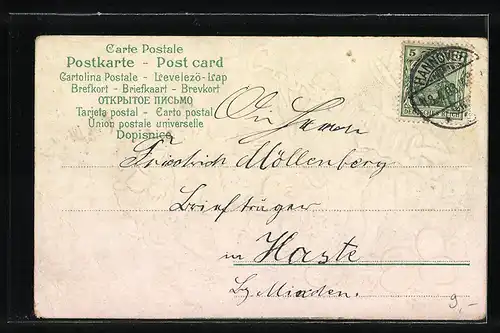 Carte Postale
Postkarte - Post card
Cartolina Postale - Levelezö-Lap
Brefkort - Briefkaart - Brevkort
ОТКРЫТОЕ ПИСЬМО
Tarjeta postal - Carto postal
Union postale universelle
Dopisnice
5
HANNOVER
An Herren
Friedrich Möllenberg
Briefträger
in Haste
Bz Minden.
9,-